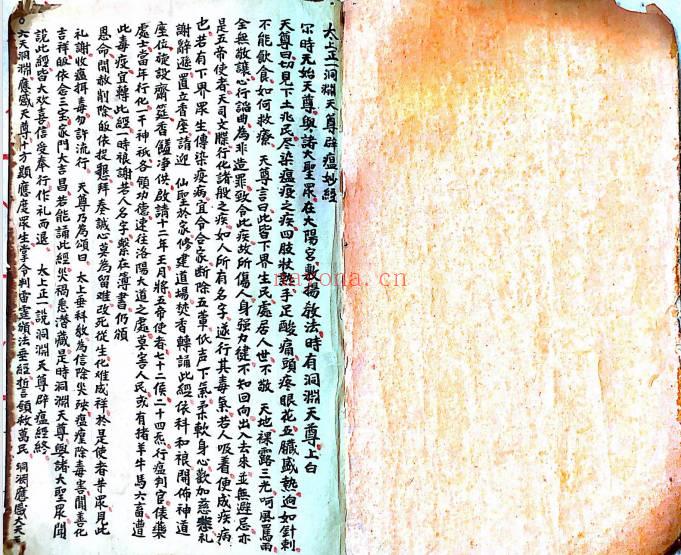 太上正一洞淵天尊辟瘟妙經
尒時元始天尊與諸大聖眾在太陽宮敷揚敎法時有洞淵天尊上白
天尊曰見下土兆民尽染瘟疫之疾四肢壮熱手足酸痛頭疼眼花五臟盛熱迥如針刺
不能飲食如何救療 天尊言曰此皆下界生民處居人世不敬 天地裸露三光呵風罵雨
全無敬讓心行謟曲為非造罪致令此疾故所傷人身强力健不知回向出入去来並無避忌亦
是五帝使者天司文牒行化諸般之疾如人所有名字遂行其毒氣若人吸着便成疾病
也若有下界眾生傳染疫病宜令合家断除五葷低声下氣柔軟身心歡加慈 礼
謝辭遜置立香座請迎 仙聖於家修建道場焚香轉誦此經依科和禳開佈神道
座位旋設齋筵香 净供啟請十二年王月將五帝使者七十二候二十四炁行瘟判官俵藥
處士當年行化一千神祇各領功德速往洛陽大道之處莫害人民或有猪羊牛馬六畜遭
此毒疫宜轉此經一時禳謝若人名字繫在簿書仍頒
恩命開赦削除皈依投懇拜奏誠心莫為留难改死從生化难成祥於是使者等眾見此
礼謝收瘟揖毒勿許流行 天尊乃為頌曰 太上垂科敎為信除災殃瘟瘴除毒害聞善化
吉祥皈依念三宝家門大吉昌若能誦此經災禍悉潜藏是時洞淵天尊與諸大聖眾聞
説此經皆大欢喜信受奉行作礼而退 太上正一説洞淵天尊辟瘟經終
六天洞淵應感天尊十方顕應度眾生掌令判雷霆頒法垂經誓願救萬民 洞渊應感大天
nayona.cn